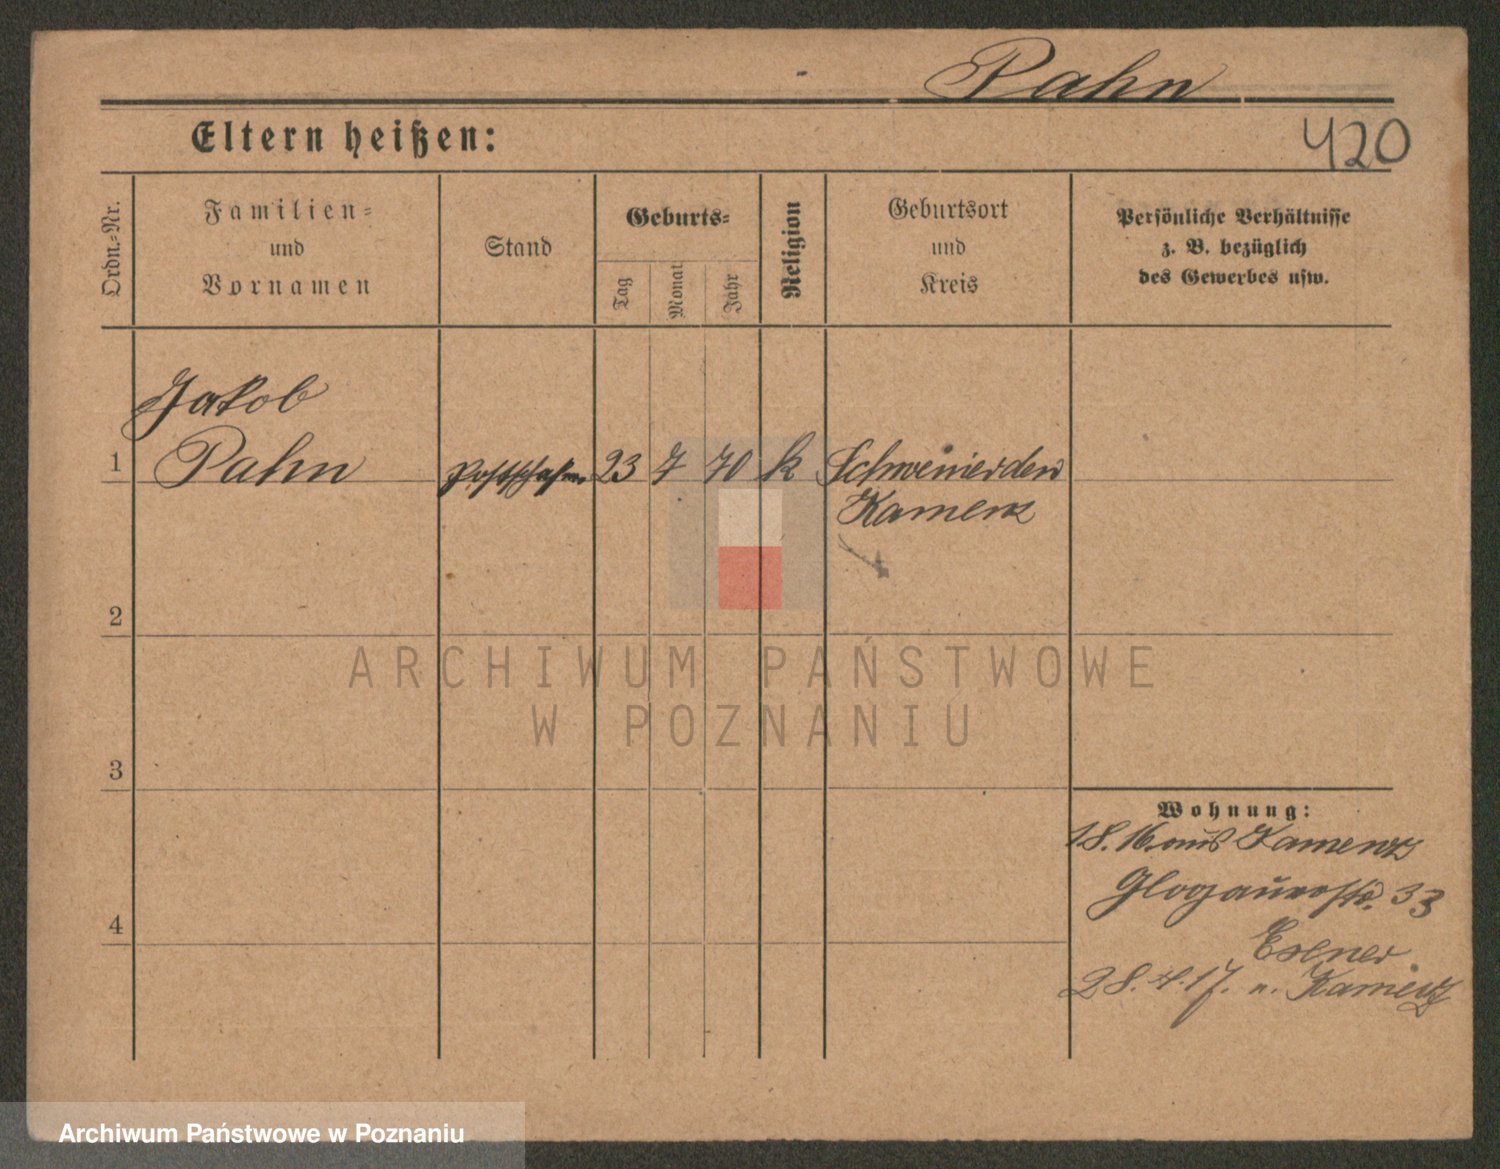 Pahn
Eltern heißen:
420
Ordn.=Nr.
Familien=
und
Vornamen
Stand
Geburts=
Tag
Monat
Jahr
Religion
Geburtsort
und
Kreis
Persönliche Verhältnisse
z. B. bezüglich
des Gewerbes usw.
Jakob
1 Pahn 23 7 70 k Schweinerden
Kamenz
2
3
4
Wohnung:
aus Kamenz
Glogauerstr. 33
Exner
28.4.17. n. Kamenz
ARCHIWUM PAŃSTWOWE
W POZNANIU
Archiwum Państwowe w Poznaniu